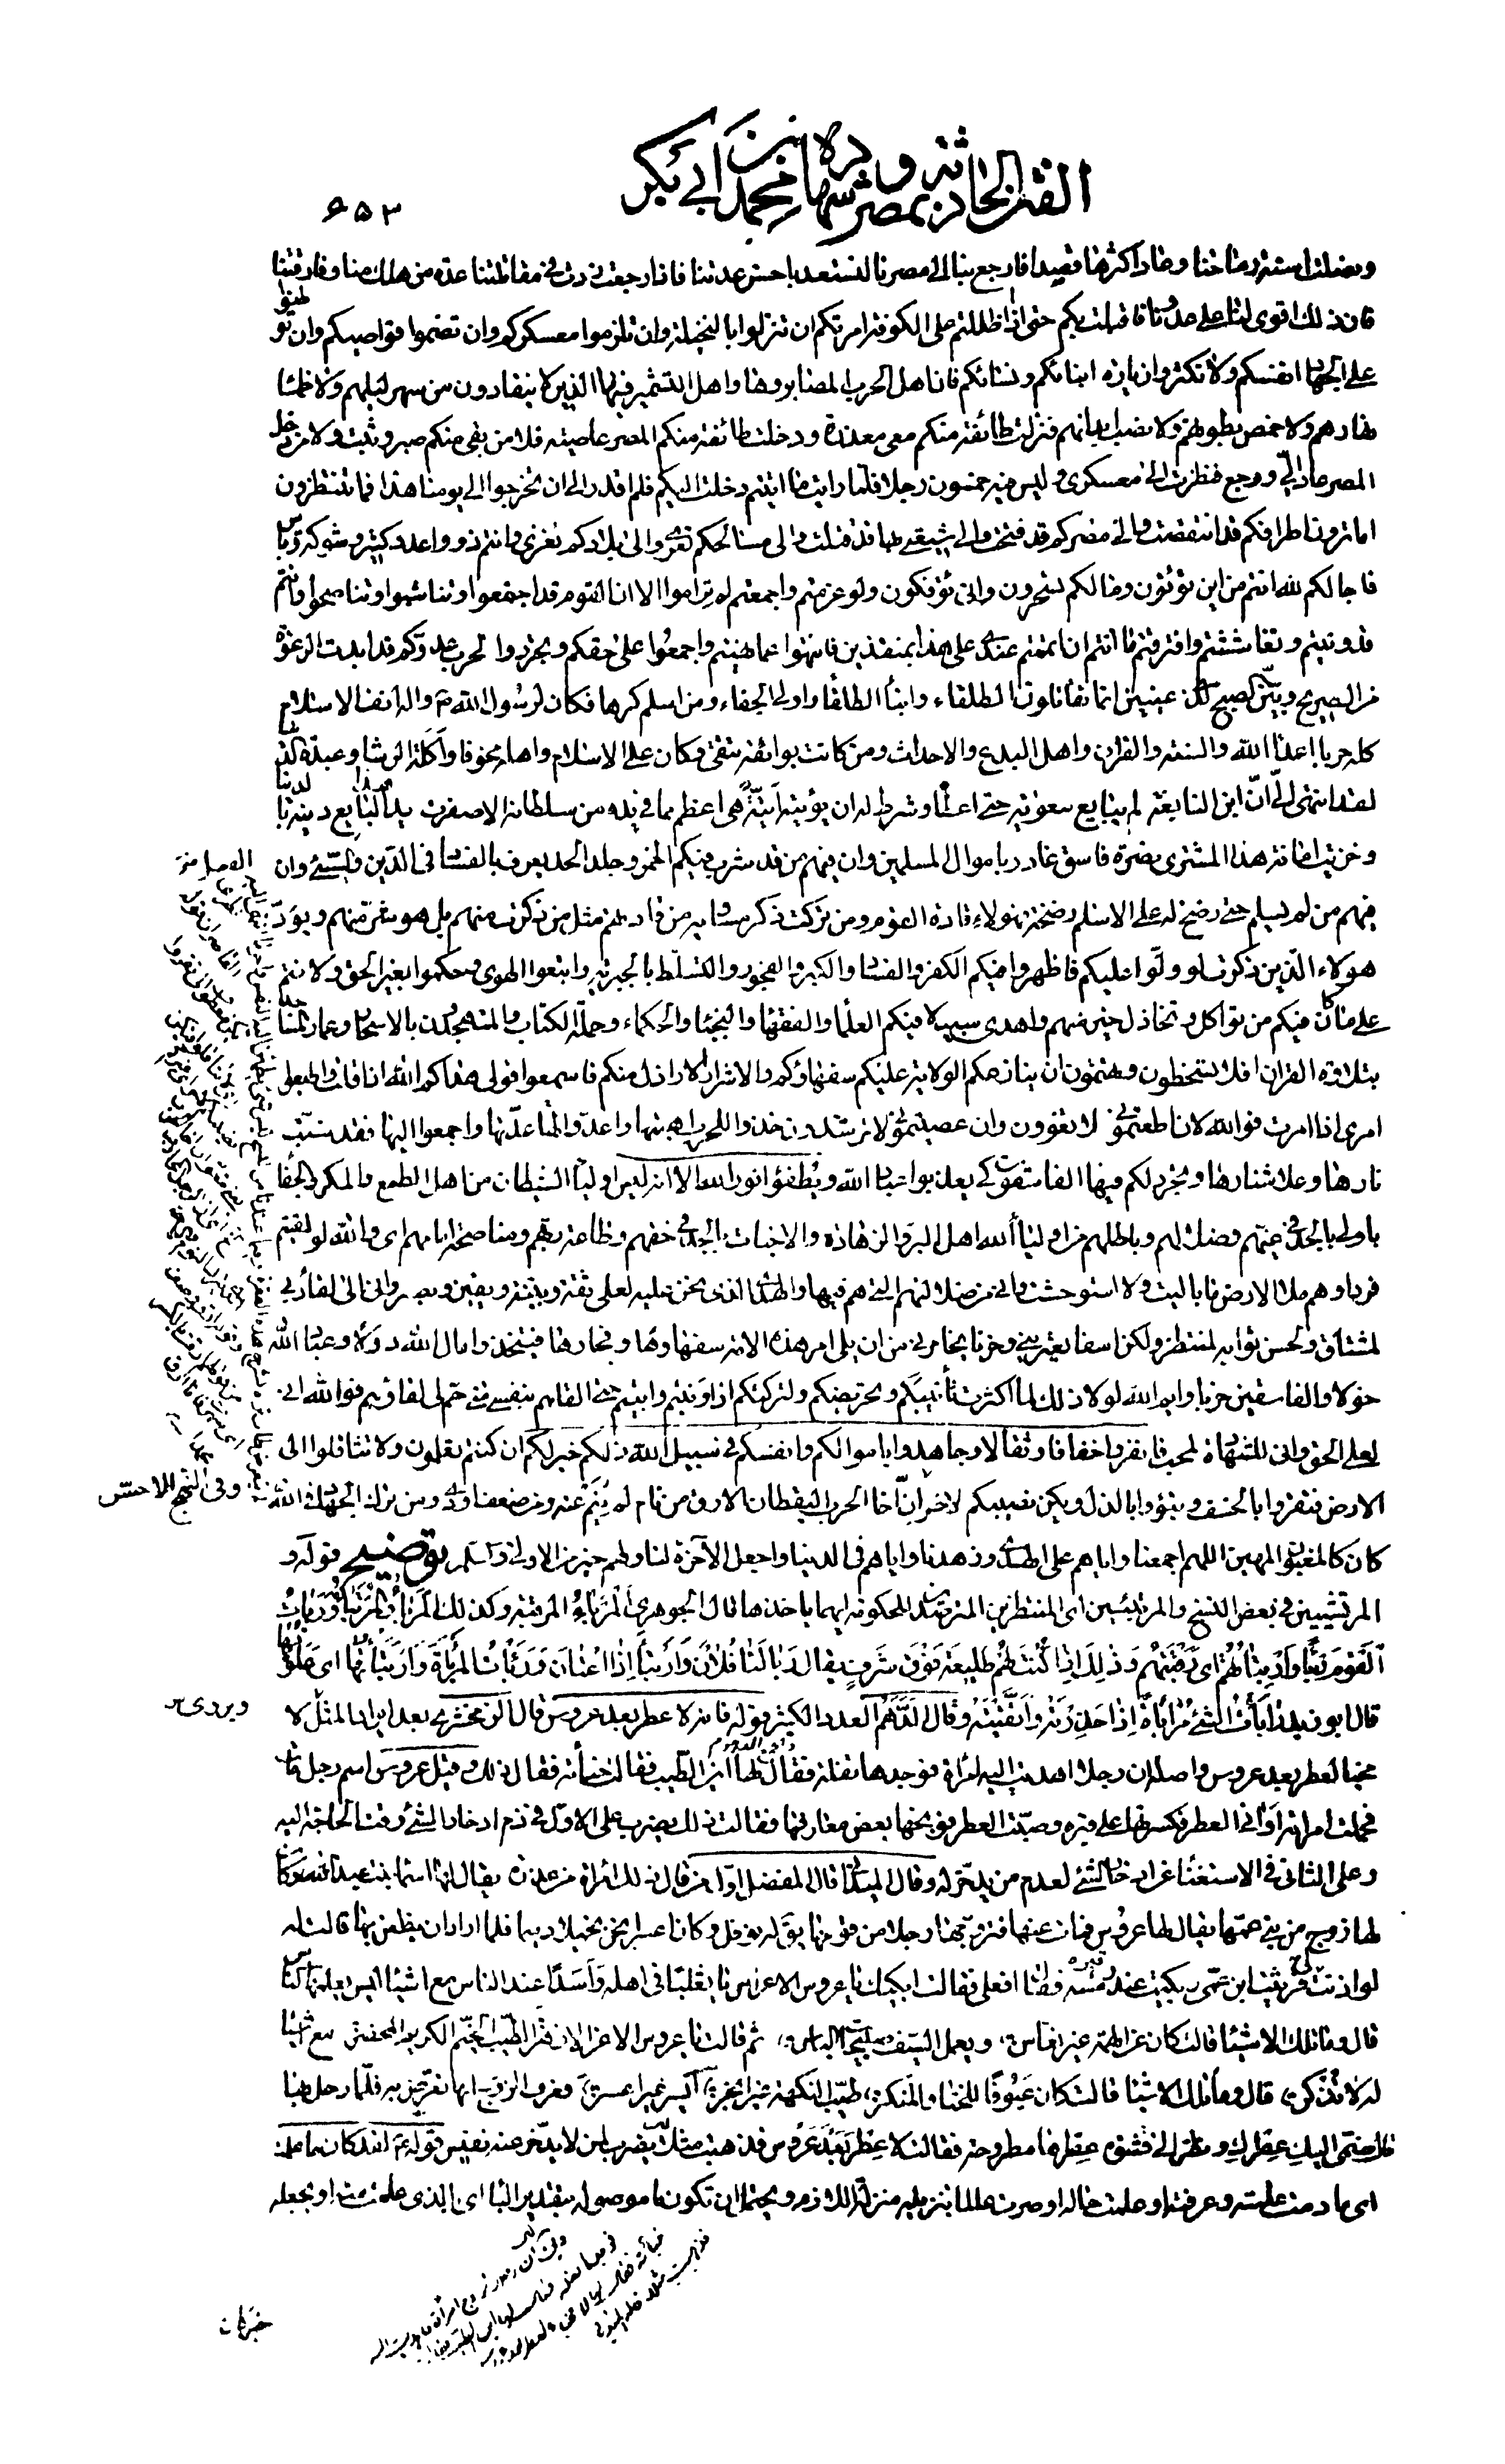 الفتن الحادثة بمصر وشهادة محمد بن أبي بكر
٦٥٣
ونصلت اسنة رماحنا وعاد اكثرها قصيدا فارجع بنا الى مصرنا لنستعد باحسن عدتنا فاذا رجعت زدت في مقاتلتنا عدة من هلك منا وفارقنا
فان ذلك اقوى لنا على عدونا فاقبلت بكم حتى اذا اظللتم على الكوفة امرتكم ان تنزلوا بالنخيلة وان تلزموا معسكركم وان تضموا قواصيكم وان توطنوا
على الجهاد انفسكم ولا تكثروا زيارة ابنائكم ونسائكم فان اهل الحرب المصابروها واهل التشمير فيها الذين لا ينقادون من سهر ليلهم ولا ظمأ
نهارهم ولا خمص بطونهم ولا نصب ابدانهم فنزلت طائفة منكم معي معذرة ودخلت طائفة منكم المصر عاصية فلا من بقي منكم صبر وثبت ولا من دخل
المصر عاد الي ورجع فنظرت الى معسكري وليس فيه خمسون رجلا فلما رايت ما اتيتم دخلت اليكم فلم اقدر الى ان تخرجوا الى يومنا هذا فما تنتظرون
اما ترون اطرافكم قد انتقصت والى مصركم قد فتحت والى شيعتي بها قد قتلت والى مسالحكم تعرى والى بلادكم تغزى وانتم ذوو عدد كثير وشوكة وباس
فما بالكم لله انتم من اين تؤتون وما لكم تسحرون وانى تؤفكون ولو عزمتم واجمعتم لم تراموا الا ان القوم قد اجتمعوا وتناشبوا وتناصحوا وانتم
قد ونيتم وتغاششتم وافترقتم ما انتم ان تممتم عندي على هذا بمنقذين فانتهوا عما نهيتم واجمعوا على حقكم وتجردوا لحرب عدوكم قد ابدت الرغوة
من الصريح وبين الصبح لكل عينين انما تقاتلون الطلقاء وابناء الطلقاء واولى الجفاء ومن اسلم كرها فكان لرسول الله ص واله انف الاسلام
كله حربا اعداء الله والسنة والقران واهل البدع والاحداث ومن كانت بوائقه تتقى وكان على الاسلام واهله مخوفا واكلة الرشا وعبدة الدنيا
لقد انتهى الي ان ابن النابغة لم يبايع معوية حتى اعطاه وشرط له ان يؤتيه اتية هي اعظم مما في يده من سلطانه الا صفرت يد هذا البايع دينه بالدنيا
وخزيت امانة هذا المشتري بنصرة فاسق غادر باموال المسلمين وان فيهم من قد شرب فيكم الخمر وجلد الحد يعرف بالفساد في الدين والسيئ وان
فيهم من لم يسلم حتى رضخ له على الاسلام رضيخة فهؤلاء قادة القوم ومن تركت ذكر مساويه من قادتهم مثل من ذكرت منهم بل هو شر منهم ويود
هؤلاء الذين ذكرت لو ولوا عليكم فاظهروا فيكم الكفر والفساد والكبر والفجور والتسلط بالجبرية واتبعوا الهوى وحكموا بغير الحق ولانتم
على ما كان فيكم من تواكل وتخاذل خير منهم واهدى سبيلا فيكم العلماء والفقهاء والنجباء والحكماء وحملة الكتاب والمتهجدون بالاسحار وعمار المساجد
بتلاوة القران افلا تسخطون وتهتمون ان ينازعكم الولاية عليكم سفهاؤكم والاشرار الاراذل منكم فاسمعوا قولي هداكم الله اذا قلت واطيعوا
امري اذا امرت فوالله لان اطعتموني لا تغوون وان عصيتموني لا ترشدون خذوا للحرب اهبتها واعدوا لها عدتها واجمعوا اليها فقد شبت
نارها وعلا شنارها وتجرد لكم فيها الفاسقون كي يعذبوا عباد الله ويطفئوا نور الله الا انه ليس اولياء الشيطان من اهل الطمع والمكر والجفاء
باولى بالجد في غيهم وضلالتهم وباطلهم من اولياء الله اهل البر والزهادة والاخبات بالجد في حقهم وطاعة ربهم ومناصحة امامهم اي والله لو لقيتم
فردا وهم ملا الارض ما باليت ولا استوحشت واني من ضلالتهم التي هم فيها والهدى الذي نحن عليه لعلى ثقة وبينة ويقين وبصر واني الى لقاء ربي
لمشتاق ولحسن ثوابه لمنتظر ولكن اسفا يعتريني وحزنا يخامرني من ان يلي امر هذه الامة سفهاؤها وفجارها فيتخذوا مال الله دولا وعباد الله
خولا والفاسقين حزبا وايم الله لولا ذلك لما اكثرت تأنيبكم وتحريضكم ولتركتكم اذا ونيتم وابيتم حتى القاهم بنفسي متى حم لي لقاؤهم فوالله اني
لعلى الحق واني للشهادة لمحب فانفروا خفافا وثقالا وجاهدوا باموالكم وانفسكم في سبيل الله ذلكم خير لكم ان كنتم تعلمون ولا تثاقلوا الى
الارض فتقروا بالخسف وتبؤوا بالذل ويكن نصيبكم الاخسر ان اخا الحرب اليقظان الارق من نام لم ينم عنه ومن ضعف اودى ومن ترك الجهاد في الله
كان كالمغبون المهين اللهم اجمعنا واياهم على الهدى وزهدنا واياهم في الدنيا واجعل الآخرة لنا ولهم خير من الاولى والسلم توضيح قوله و
المرتبئين في بعض النسخ والمرتبئسين اي المنتظرين المترصدين للحكومة ايهما ياخذها قال الجوهري المرباء المرقبة وكذلك المربأ والمرتبأ وربأت
القوم ربأ وارتبأتهم اي رقبتهم وذلك اذا كنت لهم طليعة فوق شرف يقال ربا لنا فلان وارتبأ اذا اعتان وربأت المربأة وارتبأتها اي علوتها
قال ابو زيد رابأت الشئ مرابأة اذا حذرته واتقيته وقال الدهم العدد الكثير قوله فانه لا عطر بعد عروس قال الزمخشري بعد ايراد المثل لا
مخبأ لعطر بعد عروس واصله ان رجلا اهديت اليه امرأة فوجدها تفلة فقال لها اين الطيب فقالت خبأته فقال ذلك وقيل عروس اسم رجل مات
فحملت امراته اواني العطر فكسرتها على قبره وصبت العطر فوبخها بعض معارفها فقالت ذلك يضرب على الاول في ذم ادخار الشئ وقت الحاجة اليه
وعلى الثاني في الاستغناء عن ادخار الشئ لعدم من يدخر له وقال الميداني قال المفضل اول من قال ذلك امرأة من عذرة يقال لها اسما بنت عبد الله وكان
لها زوج من بني عمها يقال لها عروس فمات عنها فتزوجها رجل من قومها يقال له نوفل وكان اعسر ابخر بخيلا دميما فلما اراد ان يظعن بها قالت له
لو اذنت لي فرثيت ابن عمي وبكيت عند رمسه فقال افعلي فقالت ابكيك يا عروس الاعراس يا ثعلبا في اهله واسدا عند الناس مع اشياء ليس يعلمها الناس
قال وما تلك الاشياء قالت كان عن الهمة غير نعاس، ويعمل السيف صبيحة الباس، ثم قالت يا عروس الاغر الازهر الطيب الخيم الكريم المحضر مع اشياء
له لا تذكر، قال وما تلك الاشياء قالت كان عيوفا للخنا والمنكر، طيب النكهة غير ابخر، ايسر غير اعسر، فعرف الزوج انها تعرض به فلما رحل بها
قال ضمي اليك عطرك ونظر الى قشوة عطرها مطروحة فقالت لا عطر بعد عروس فذهبت مثلا يضرب لمن لا يدخر عنه نفيس قوله ع لقد كان ما علمت
اي ما دمت علمته وعرفته او علمت حاله او صرت عالما بتنزيله منزلة اللازم ويحتمل ان تكون ما موصولة بتقدير الباء اي بالذي علمت منه او بجعله
وفي النهج الاخس
ويردى